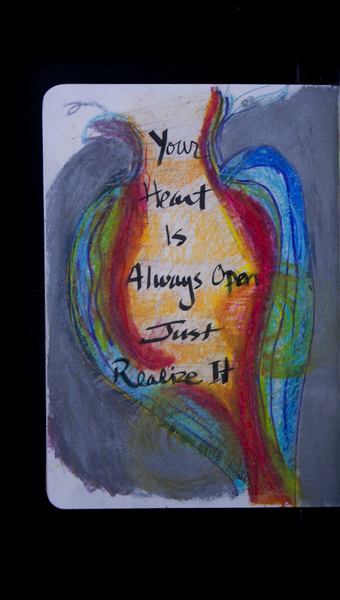 Your
Heart
Is
Always Open
Just
Realize It